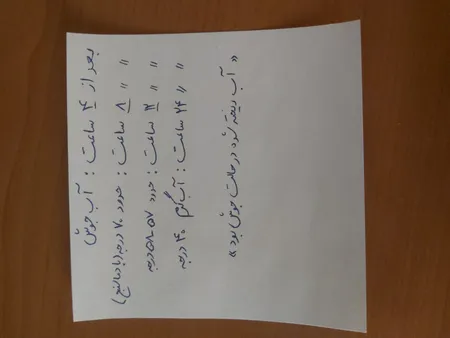 بعد از ۴ ساعت : آب جوش
〃 〃 ۸ ساعت : حدود ۷۰ درجه (با دماسنج)
〃 〃 ۱۲ ساعت : حدود ۵۷-۵۸ درجه
〃 〃 ۲۴ ساعت : آب گرم ۴۰ درجه
« آب ریخته شده در حالت جوش بود »